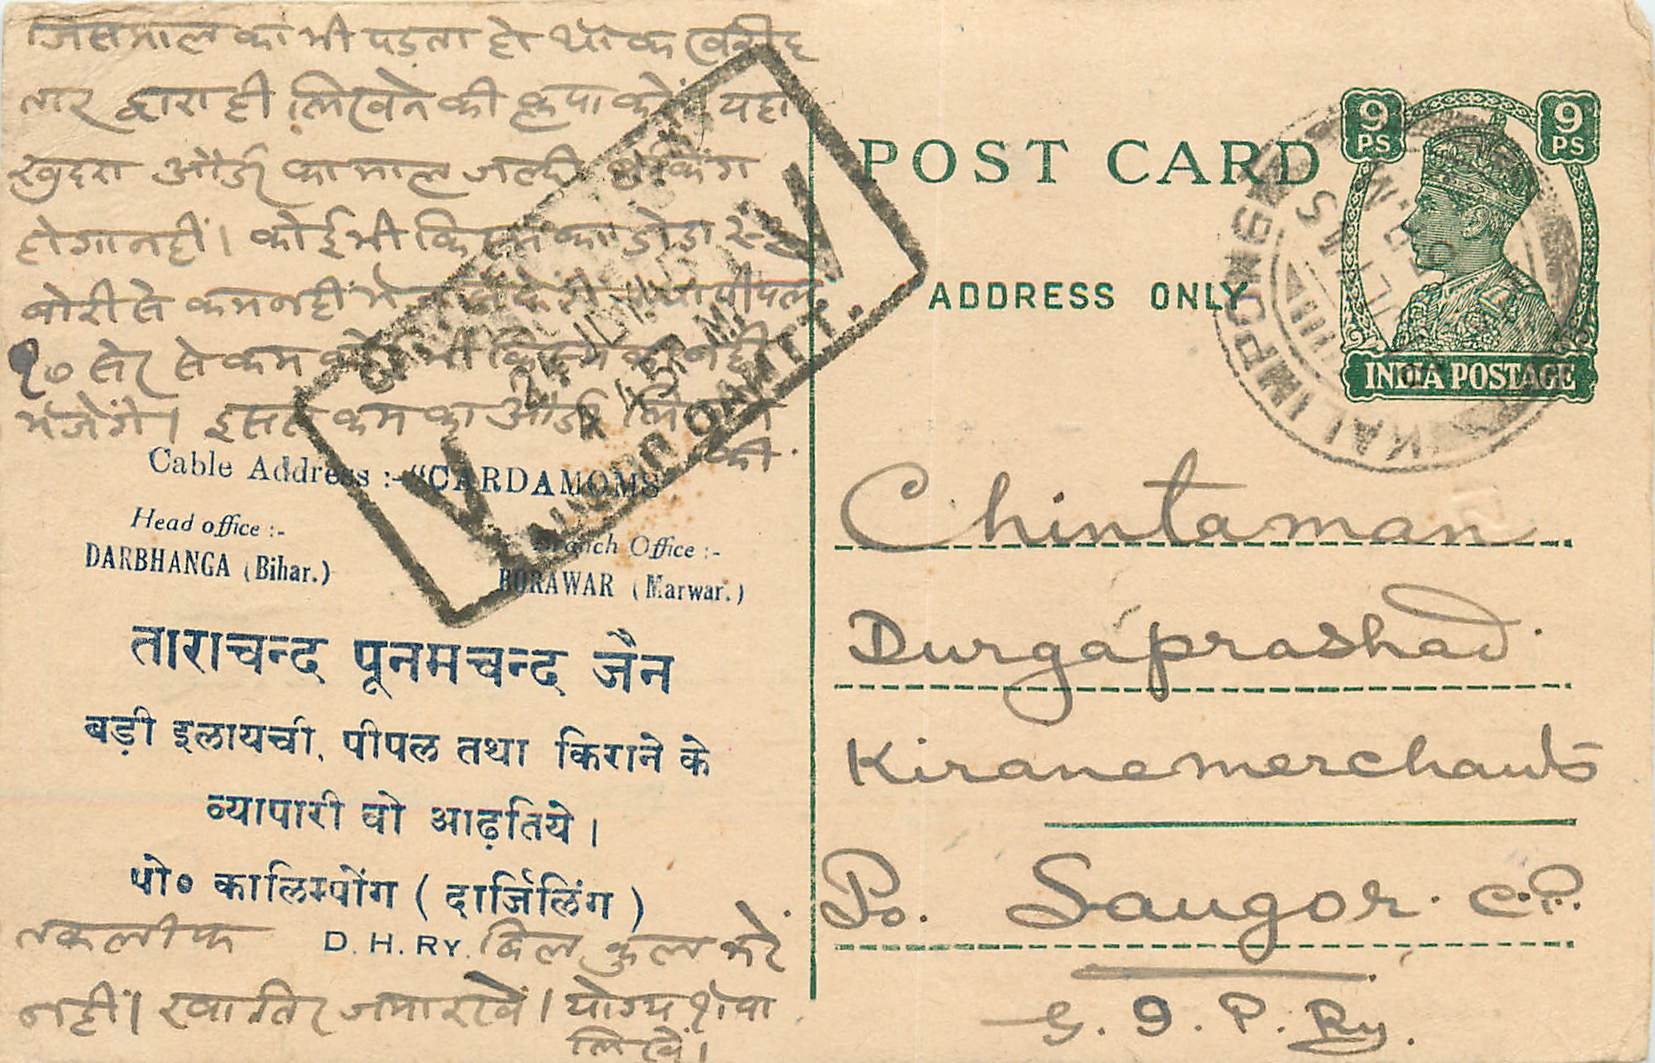 जिस माल का भी पड़ता हो थोक खरीद
तार द्वारा ही लिखने की कृपा करें। यहां
खुदरा और्डर का माल जल्दी
होगा नहीं। कोई भी किस्म का डोडा २-४
बोरी से कम नहीं पीपल
१० सेर से कम कोई भी किस्म का नहीं
भेजेंगे। इससे कम का और्डर लिखने
की
Cable Address :- "CARDAMOMS"
Head office :-
DARBHANGA (Bihar.)
Branch Office :-
BORAWAR (Marwar.)
ताराचन्द पूनमचन्द जैन
बड़ी इलायची, पीपल तथा किराने के
व्यापारी वो आढ़तिये।
पो० कालिम्पोंग ( दार्जिलिंग )
D. H. RY.
तकलीफ बिल्कुल करें
नहीं। खातिर जमा रखें। योग्य सेवा
लिखें।
V
V
24 JUN
4.45 P.M.
POST CARD
ADDRESS ONLY
9 PS
9 PS
INDIA POSTAGE
KALIMPONG
Chintaman
Durgaprashad
Kirane merchants
Po. Saugor. C.P.
G. I. P. Ry.